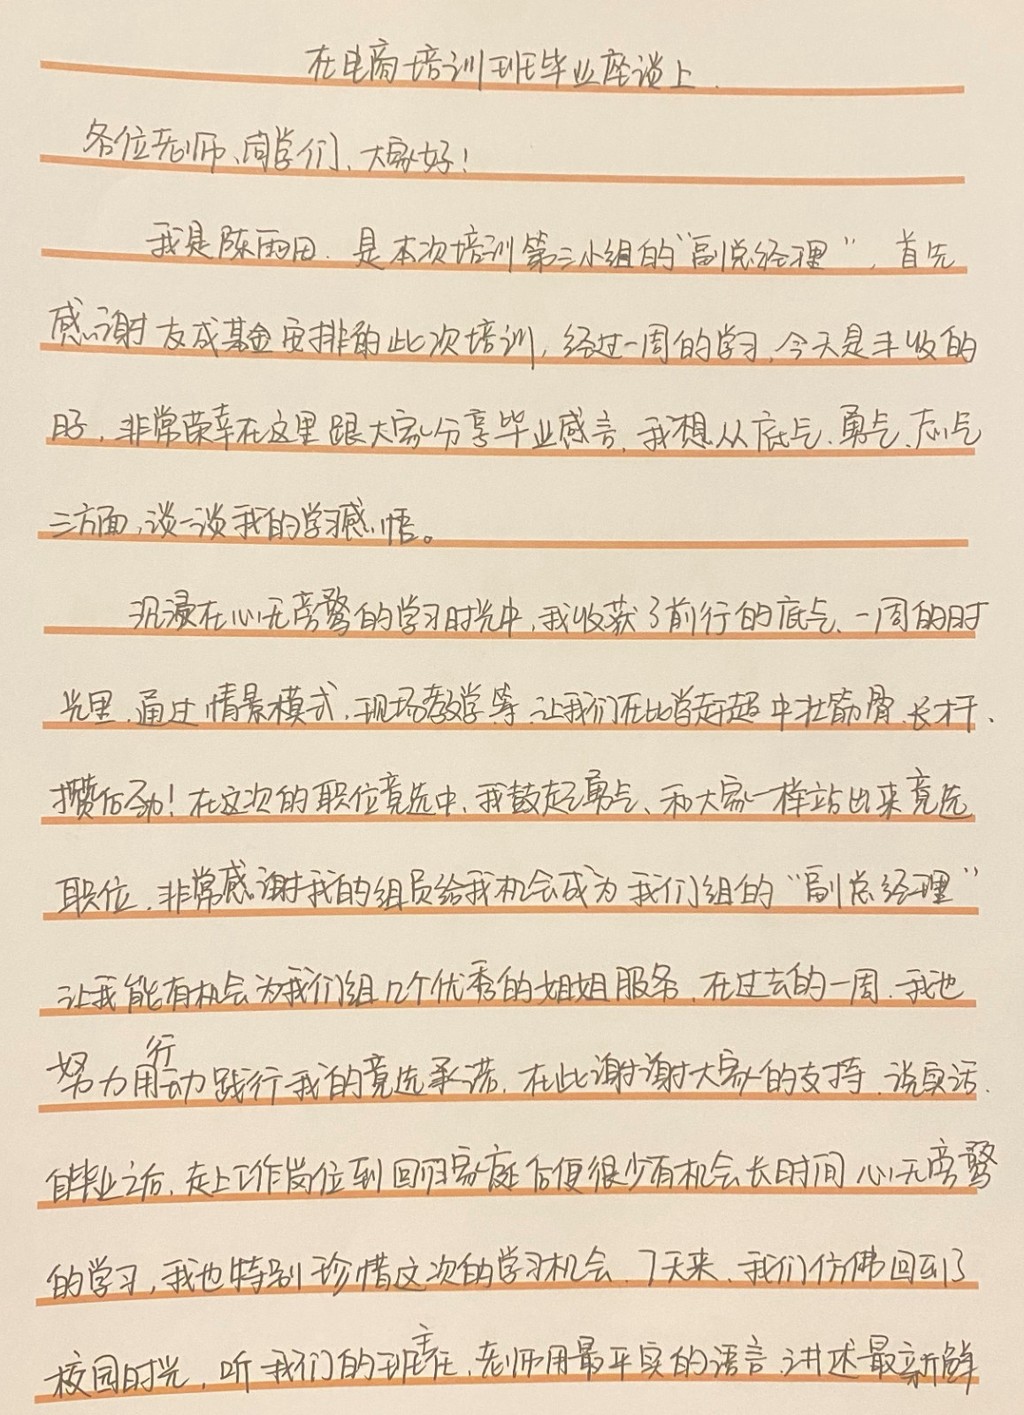 在电商培训班毕业座谈上.
各位老师、同学们、大家好!
我是陈雨田.是本次培训第三小组的“副总经理”,首先
感谢友成基金安排的此次培训,经过一周的学习,今天是丰收的
日子,非常荣幸在这里跟大家分享毕业感言,我想从底气、勇气、志气
三方面,谈一谈我的学习感悟。
沉浸在心无旁骛的学习时光中,我收获了前行的底气、一周的时
光里,通过情景模式,现场教学等,让我们在比学赶超中壮筋骨、长才干、
攒后劲!在这次的职位竞选中,我鼓起勇气、和大家一样站出来竞选
职位,非常感谢我的组员给我机会成为我们组的“副总经理”
让我能有机会为我们组几个优秀的姐姐服务,在过去的一周,我也
努力用行动践行我的竞选承诺,在此谢谢大家的支持,说实话,
自毕业之后,走上工作岗位到回归家庭后便很少有机会长时间心无旁骛
的学习,我也特别珍惜这次的学习机会,7天来,我们仿佛回到了
校园时光,听我们的班主任,老师用最平实的语言,讲述最新鲜